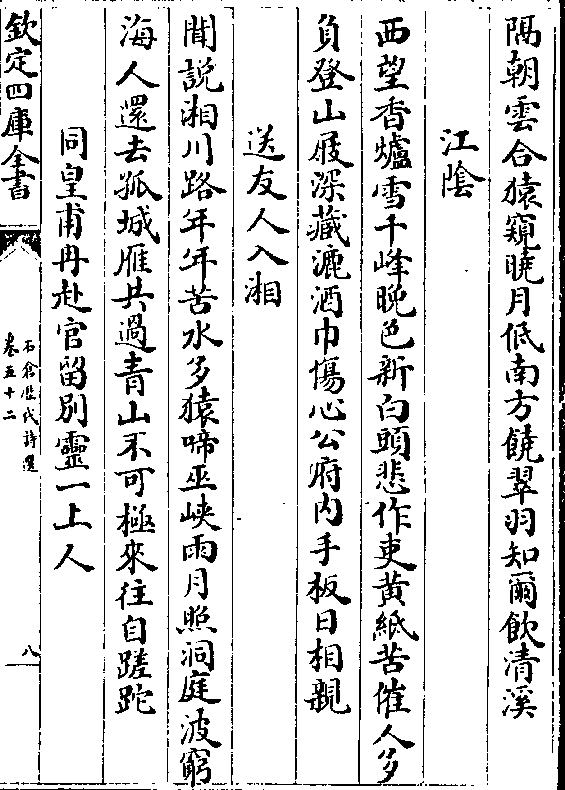 隅朝雲合猿窺曉月低南方饒翠羽知爾飲清溪
江陰
西望香爐雪千峰晚色新白頭悲作吏黃紙苦催人多
負登山屐深藏漉酒巾傷心公府內手板日相親
送友人入湘
聞說湘川路年年苦水多猿啼巫峽雨月照洞庭波窮
海人還去孤城雁共過青山不可極來往自蹉跎
同皇甫冉赴官留別靈一上人
欽定四庫全書
石倉歷代詩選
卷五十二
八